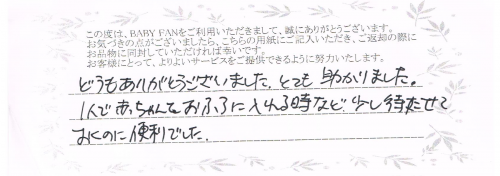 この度は、BABY FANをご利用いただきまして、誠にありがとうございます。
お気づきの点がございましたら、こちらの用紙にご記入いただき、ご返却の際に
お品物に同封していただければ幸いです。
お客様にとって、よりよいサービスをご提供できるように努力いたします。
どうもありがとうございました。とても助かりました。
1人であっちゃんをおふろに入れる時など、少し待たせて
おくのに便利でした。